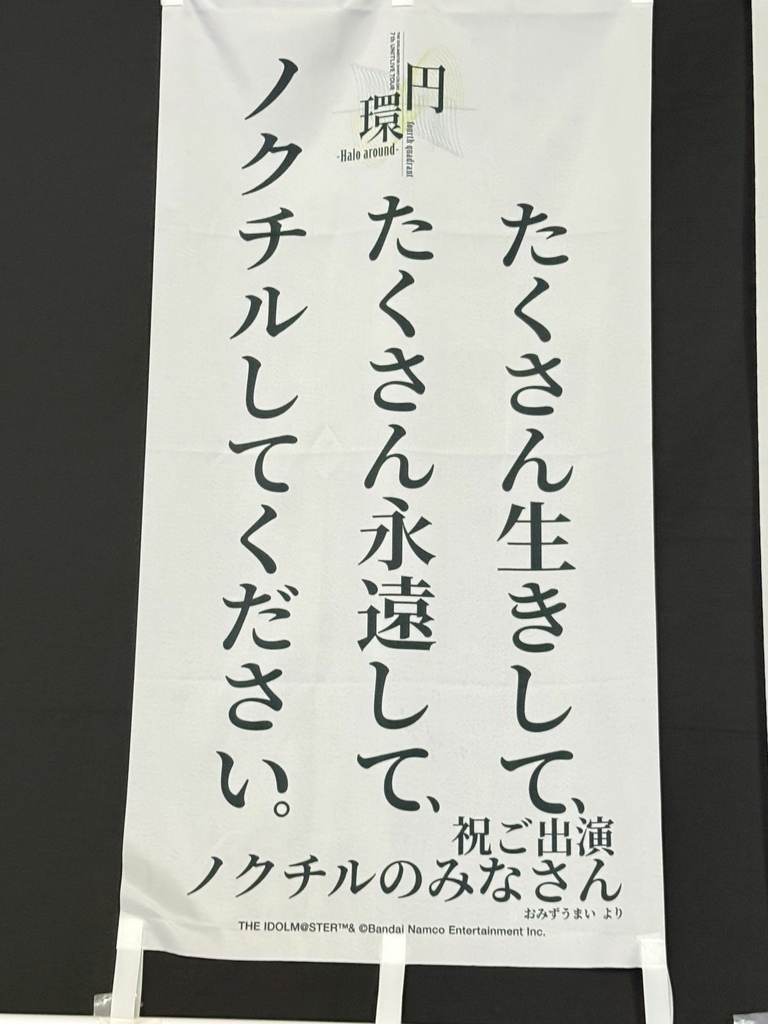 円環
-Halo around-
fourth quadrant
たくさん生きして、
たくさん永遠して、
ノクチルしてください。
祝ご出演
ノクチルのみなさん
おみずうまい より
THE IDOLM@STER™& ©Bandai Namco Entertainment Inc.